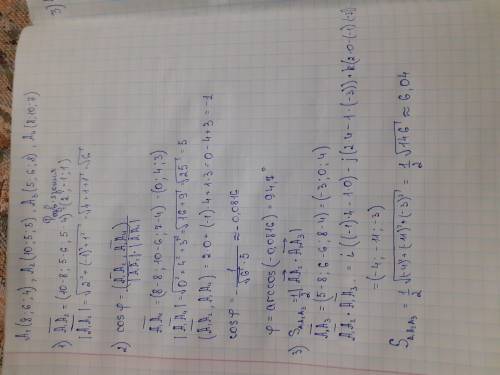 A₁(8;6;4), A₂(10;5;5), A₃(5;6;8), A₄(8;10;7)
1) A₁A₂ = (10-8; 5-6; 5-4) = (2; -1; 1)
|A₁A₂| = √2² + (-1)² + 1² = √4+1+1 = √6
2) cos φ = (A₁A₂, A₁A₄) / |A₁A₂|·|A₁A₄|
A₁A₄ = (8-8; 10-6; 7-4) = (0; 4; 3)
|A₁A₄| = √0² + 4² + 3² = √16+9 = √25 = 5
(A₁A₂, A₁A₄) = 2·0 + (-1)·4 + 1·3 = 0-4+3 = -1
cos φ = 1 / √6 · 5 ≈ -0,0816
φ = arccos(-0,0816) = 94,7°
3) S A₁A₂A₃ = 1/2 |A₁A₂ · A₁A₃|
A₁A₃ = (5-8; 6-6; 8-4) = (-3; 0; 4)
A₁A₂ · A₁A₃ = i((-1)·4 - 1·0) - j(2·4 - 1·(-3)) + k(2·0 - (-1)·(-3))
= (-4; -11; -3)
S A₁A₂A₃ = 1/2 √(4)² + (11)² + (-3)² = 1/2 √146 ≈ 6,04